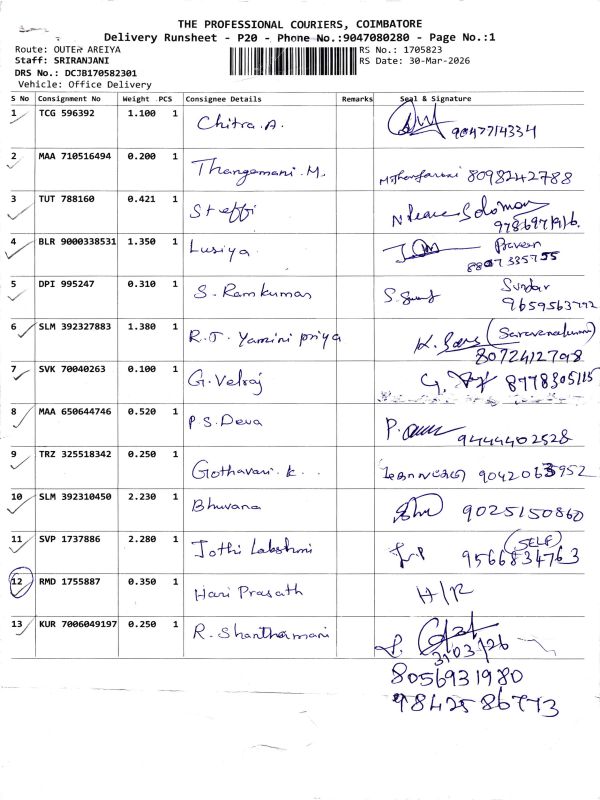 THE PROFESSIONAL COURIERS, COIMBATORE
Delivery Runsheet - P20 - Phone No.:9047080280 - Page No.:1
Route: OUTER AREIYA RS No.: 1705823
Staff: SRIRANJANI RS Date: 30-Mar-2026
DRS No.: DCJB170582301
Vehicle: Office Delivery
S No Consignment No Weight PCS Consignee Details Remarks Seal & Signature
1 TCG 596392 1.100 1 Chitra.A. 9047714334
2 MAA 710516494 0.200 1 Thangamani.M. 8098242788
3 TUT 788160 0.421 1 Steffi Solomon
9786971916.
4 BLR 9000338531 1.350 1 Lusiya. Praveen
8807335755
5 DPI 995247 0.310 1 S. Ramkumar Sundar
9659563772
6 SLM 392327883 1.380 1 R.J. Yamini priya K. (Saravanakumar)
8072412798
7 SVK 70040263 0.100 1 G. Velraj G. 8778305115
8 MAA 650644746 0.520 1 P.S. Deva P. 9444402528
9 TRZ 325518342 0.250 1 Gothavari.k.. 9042063952
10 SLM 392310450 2.230 1 Bhuvana 9025150860
11 SVP 1737886 2.280 1 Jothi Lakshmi (SELF)
9566834763
12 RMD 1755887 0.350 1 Hari Prasath H/R
13 KUR 7006049197 0.250 1 R. Shanthamani
31/03/26
8056931980
9842586773